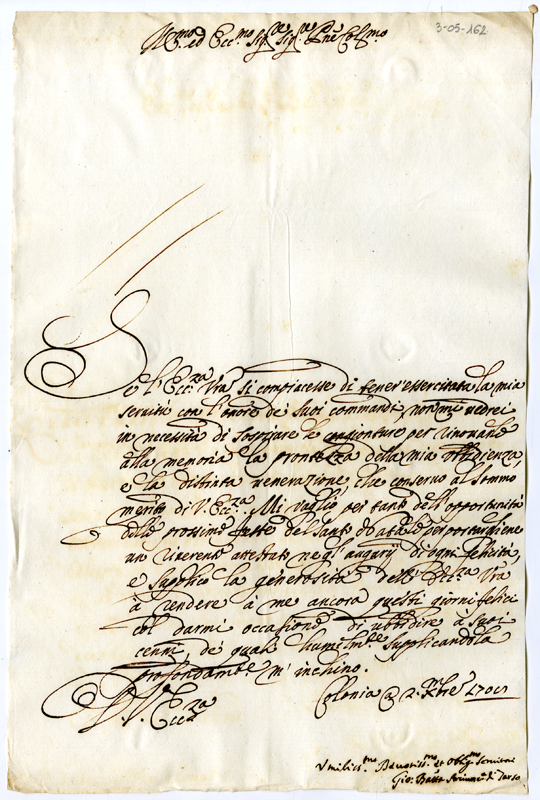 3-05-162
Ill.mo ed Ecc.mo Sig.re Sig.re Pne Col.mo
Se l'Ecc.za Vra si compiacesse di tener essercitata la mia
servitù con l'onore de Suoi commandi, non mi vedrei
in necessità di sospirare le congionture per rinovarle
alla memoria la prontezza della mia obedienza,
e la distinta venerazione, che conservo al sommo
merito di V. Ecc.za Mi vaglio per tanto dell'opportunità
delle prossime feste del Santo Natale per porturgliene
un riverente attestato negl'augurij di ogni felicità,
e supplico la generosità dell'Ecc.za Vra
à rendere à me ancora questi giorni felici
col darmi occasione di ubbidire à Suoi
cenni, de quali humilm.te supplicandola
profondam.te m'inchino.
Colonia 2. Xbre
D. V. Ecc.za
Umiliss.mo Devotiss.mo et Obl.mo Servitor
Gio. Batta di Tarso